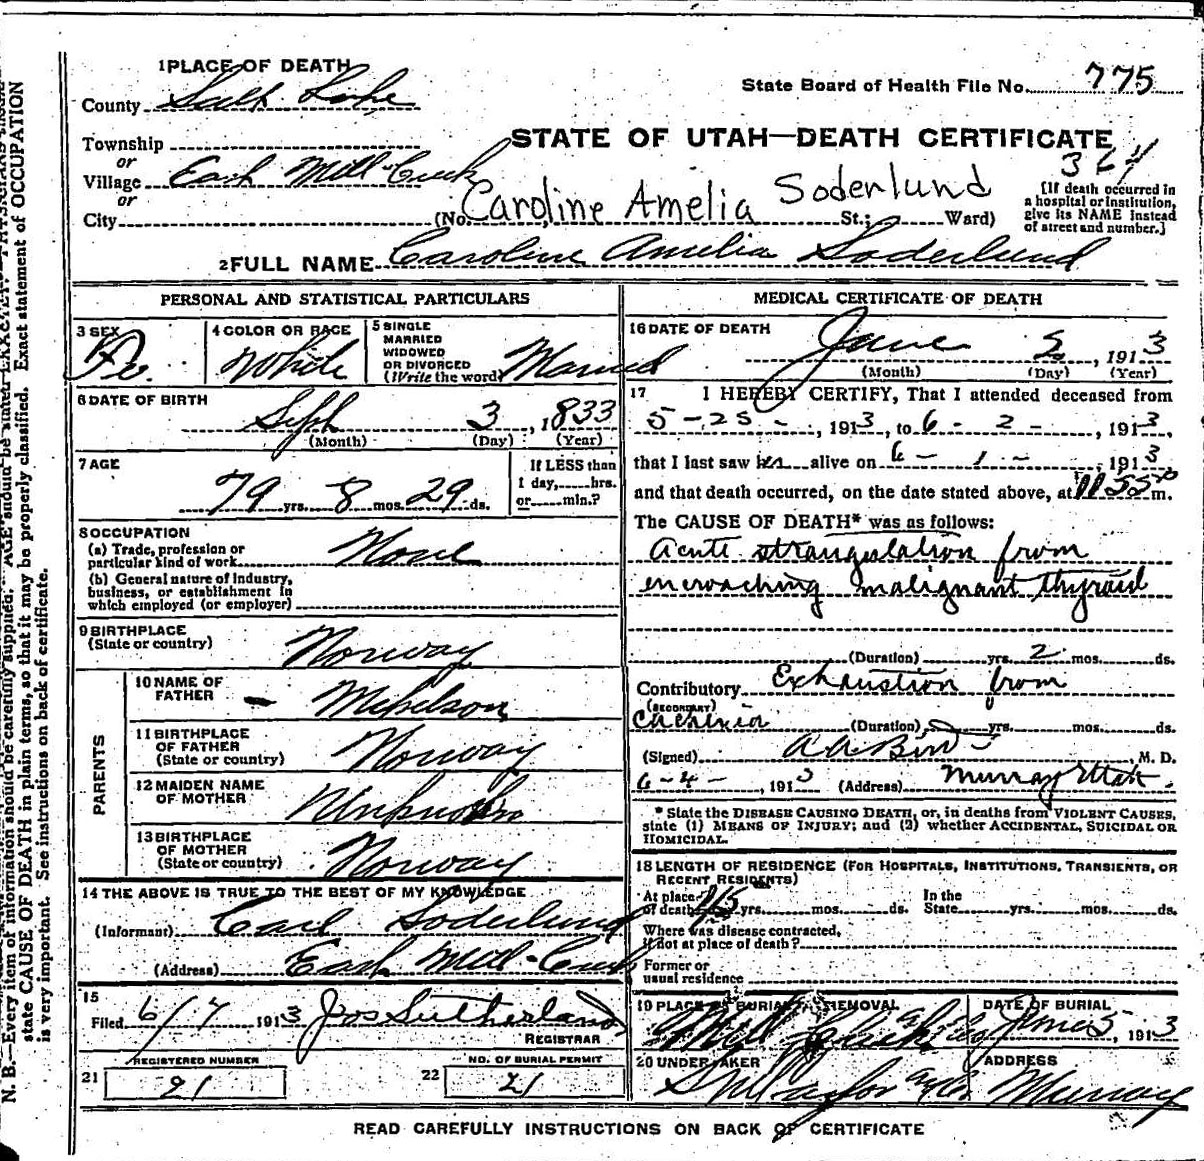 1 PLACE OF DEATH
County Salt Lake
State Board of Health File No. 775
Township
or
Village East Mill Creek
or
City
STATE OF UTAH—DEATH CERTIFICATE
364
(No. Caroline Amelia Soderlund St.; Ward)
[If death occurred in
a hospital or institution,
give its NAME instead
of street and number.]
2 FULL NAME Caroline Amelia Soderlund
PERSONAL AND STATISTICAL PARTICULARS
3 SEX
Fe.
4 COLOR OR RACE
White
5 SINGLE
MARRIED
WIDOWED
OR DIVORCED
(Write the word) Married
6 DATE OF BIRTH
Sept 3, 1833
(Month) (Day) (Year)
7 AGE
79 yrs. 8 mos. 29 ds.
If LESS than
1 day, hrs.
or min.?
8 OCCUPATION
(a) Trade, profession or
particular kind of work None
(b) General nature of Industry,
business, or establishment in
which employed (or employer)
9 BIRTHPLACE
(State or country) Norway
PARENTS
10 NAME OF
FATHER
11 BIRTHPLACE
OF FATHER
(State or country) Norway
12 MAIDEN NAME
OF MOTHER Unknown
13 BIRTHPLACE
OF MOTHER
(State or country) Norway
14 THE ABOVE IS TRUE TO THE BEST OF MY KNOWLEDGE
(Informant) Carl Soderlund
(Address) East Mill Creek
15
Filed 6/7 1913 Jos Sutherland
REGISTRAR
REGISTERED NUMBER
21 21
NO. OF BURIAL PERMIT
22 21
MEDICAL CERTIFICATE OF DEATH
16 DATE OF DEATH
June 2, 1913
(Month) (Day) (Year)
17 I HEREBY CERTIFY, That I attended deceased from
5-25-, 1913, to 6-2-, 1913,
that I last saw her alive on 6-1-, 1913
and that death occurred, on the date stated above, at 1155 p m.
The CAUSE OF DEATH* was as follows:
Acute strangulation from
encroaching malignant thyroid
(Duration) yrs. 2 mos. ds.
Contributory Exhaustion from
(SECONDARY)
Cachexia (Duration) yrs. mos. ds.
(Signed) M. D.
6-4-, 1913 (Address) Murray Utah
* State the DISEASE CAUSING DEATH, or, in deaths from VIOLENT CAUSES,
state (1) MEANS OF INJURY; and (2) whether ACCIDENTAL, SUICIDAL OR
HOMICIDAL.
18 LENGTH OF RESIDENCE (FOR HOSPITALS, INSTITUTIONS, TRANSIENTS, OR
RECENT RESIDENTS)
At place
of death yrs. mos. ds.
In the
State yrs. mos. ds.
Where was disease contracted,
if not at place of death?
Former or
usual residence
19 PLACE OF BURIAL OR REMOVAL
DATE OF BURIAL
June 5, 1913
20 UNDERTAKER
ADDRESS
Murray
READ CAREFULLY INSTRUCTIONS ON BACK OF CERTIFICATE
N. B.—Every item of information should be carefully supplied. AGE should be stated EXACTLY. PHYSICIANS should
state CAUSE OF DEATH in plain terms, so that it may be properly classified. Exact statement of OCCUPATION
is very important. See instructions on back of certificate.